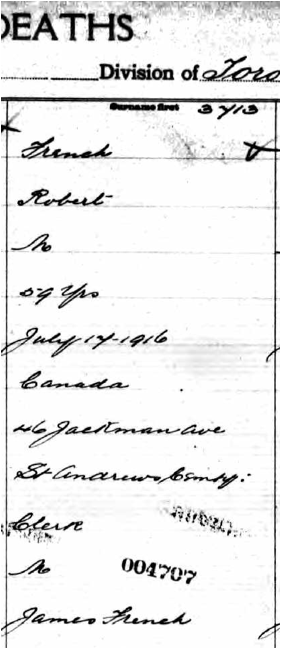 DEATHS
Division of Toro
Surname first 3713
French
Robert
M
59 Yrs
July 17-1916
Canada
46 Jackman Ave
St Andrews Cemty:
Clerk
M
004707
James French